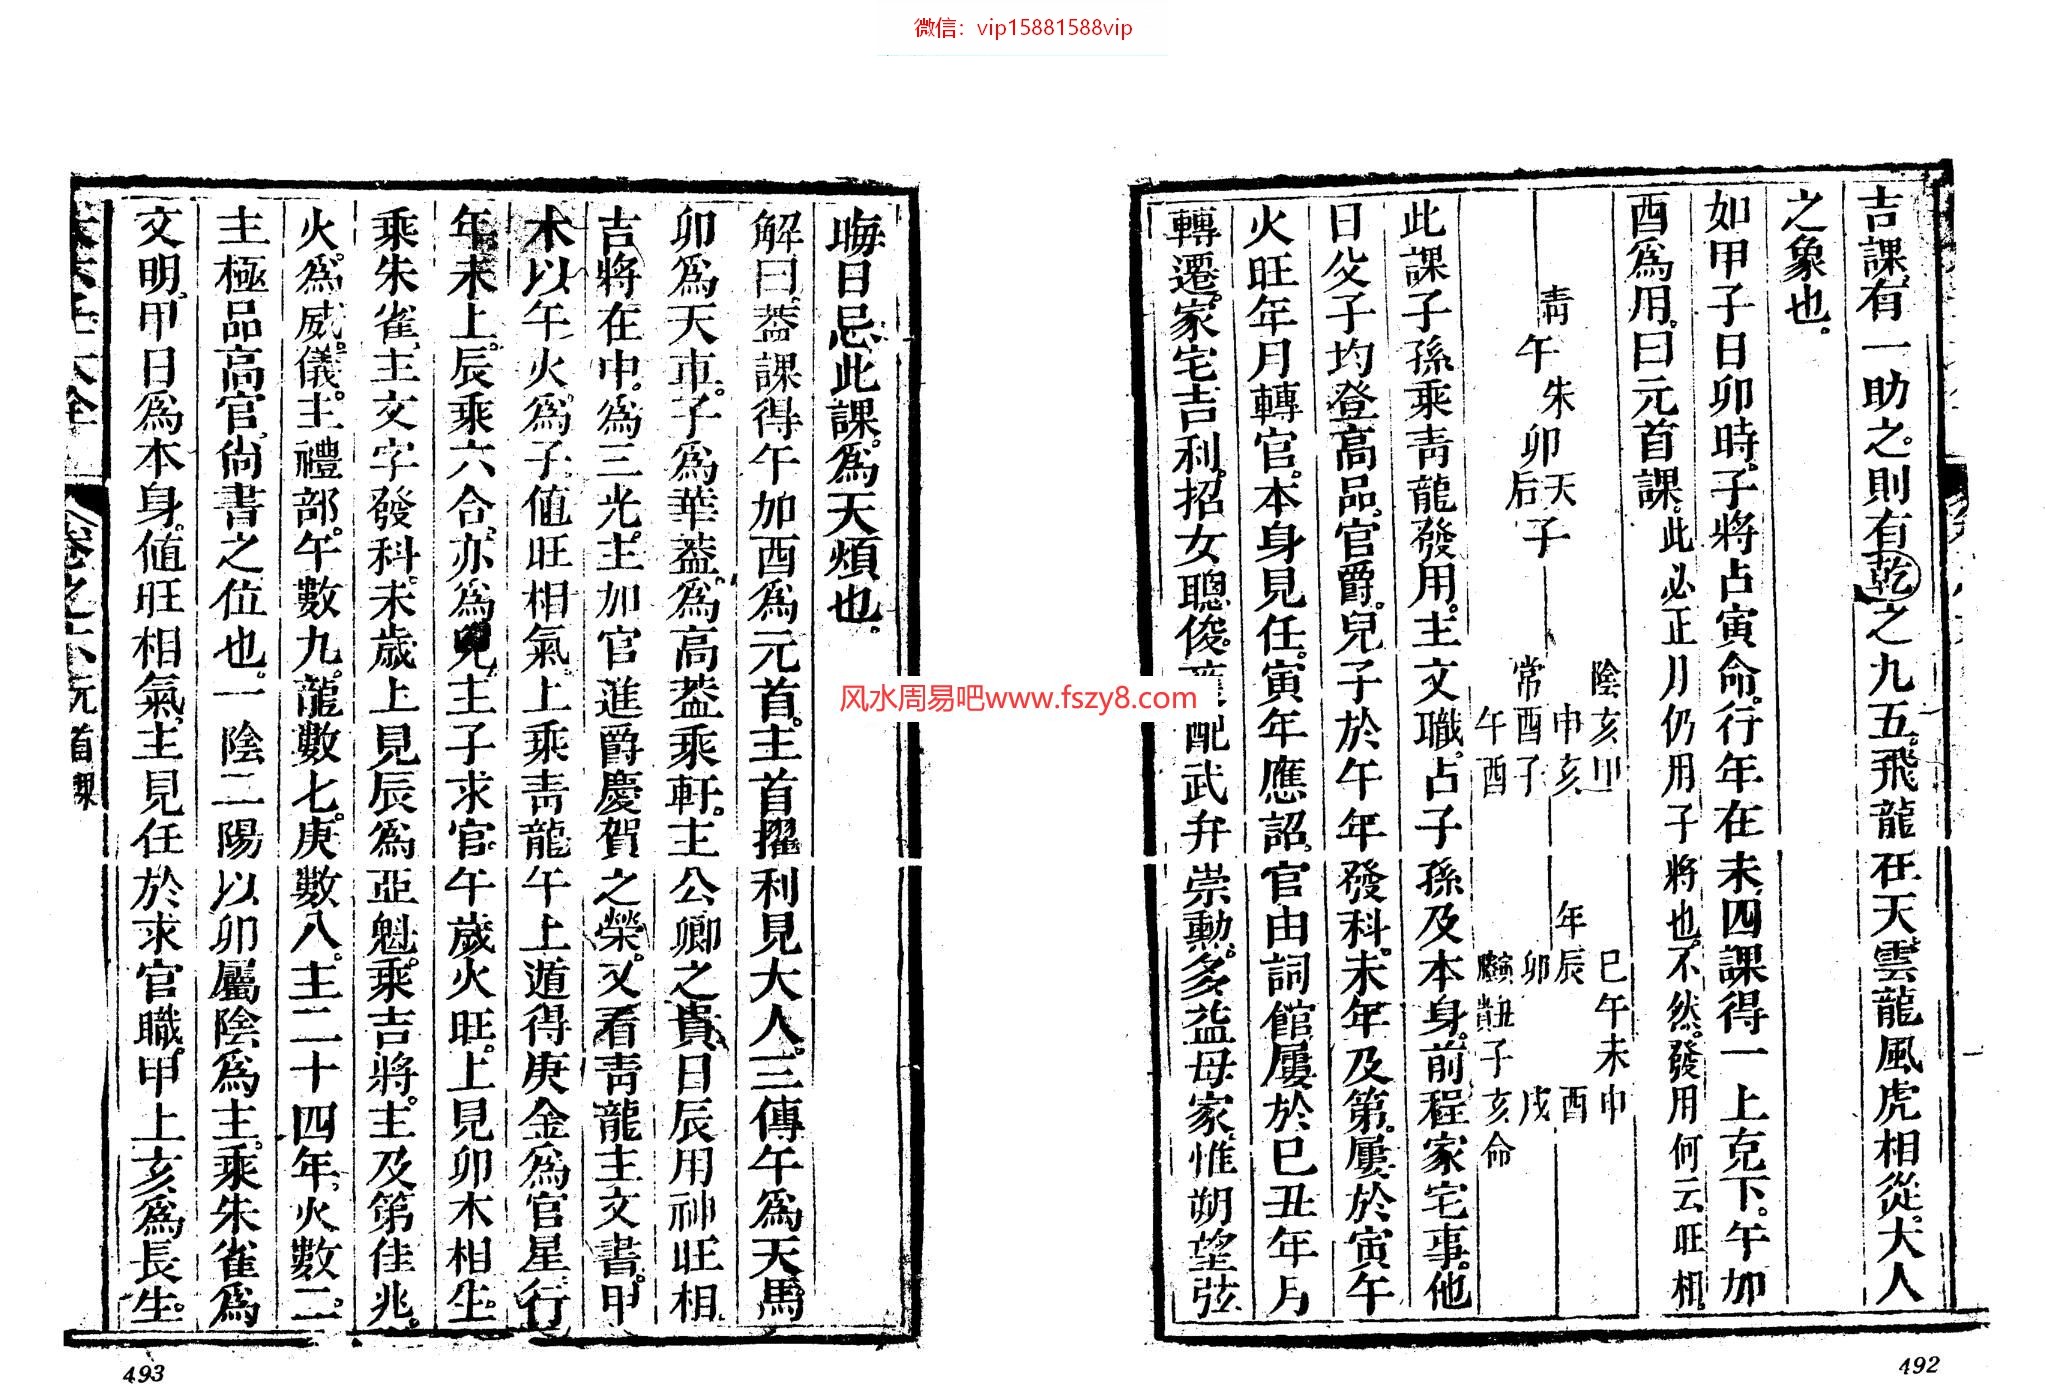 微信：vip15881588vip
吉課有一助之則有乾之九五飛龍在天雲龍風虎相從大人
之象也
如甲子日卯時子將占寅命行年在未四課得一上克下午加
酉爲用曰元首課此必正月仍用子將也不然發用何云旺相
青
午
朱
卯
天后
子
陰
亥甲
申亥
常
酉子
午酉
年
巳午未申
辰
酉
卯
戌
貴丑子亥命
此課子孫乘青龍發用主文職占子孫及本身前程家宅事他
日父子均登高品官爵兒子於午年發科未年及第屢於寅午
火旺年月轉官本身見任寅年應詔官由詞館屢於巳丑年月
轉遷家宅吉利招女聰俊配武弁崇勳多益母家惟朔望弦
492
晦日忌此課爲天煩也
解曰蓋課得午加酉爲元首主首擢利見大人三傳午爲天馬
卯爲天車子爲華蓋爲高蓋乘軒主公卿之貴日辰用神旺相
吉將在中爲三光主加官進爵慶賀之榮又看青龍主文書甲
木以午火爲子值旺相氣上乘青龍午上遁得庚金爲官星行
年未上辰乘六合亦爲兒主子求官午歲火旺上見卯木相生
乘朱雀主文字發科未歲上見辰爲亞魁乘吉將主及第佳兆
火爲威儀主禮部午數九龍數七庚數八主二十四年火數二
主極品高官尙書之位也一陰二陽以卯屬陰爲主乘朱雀爲
文明甲日爲本身値旺相氣主見任於求官職甲上亥爲長生
卷之六 元首課
493
风水周易吧www.fszy8.com